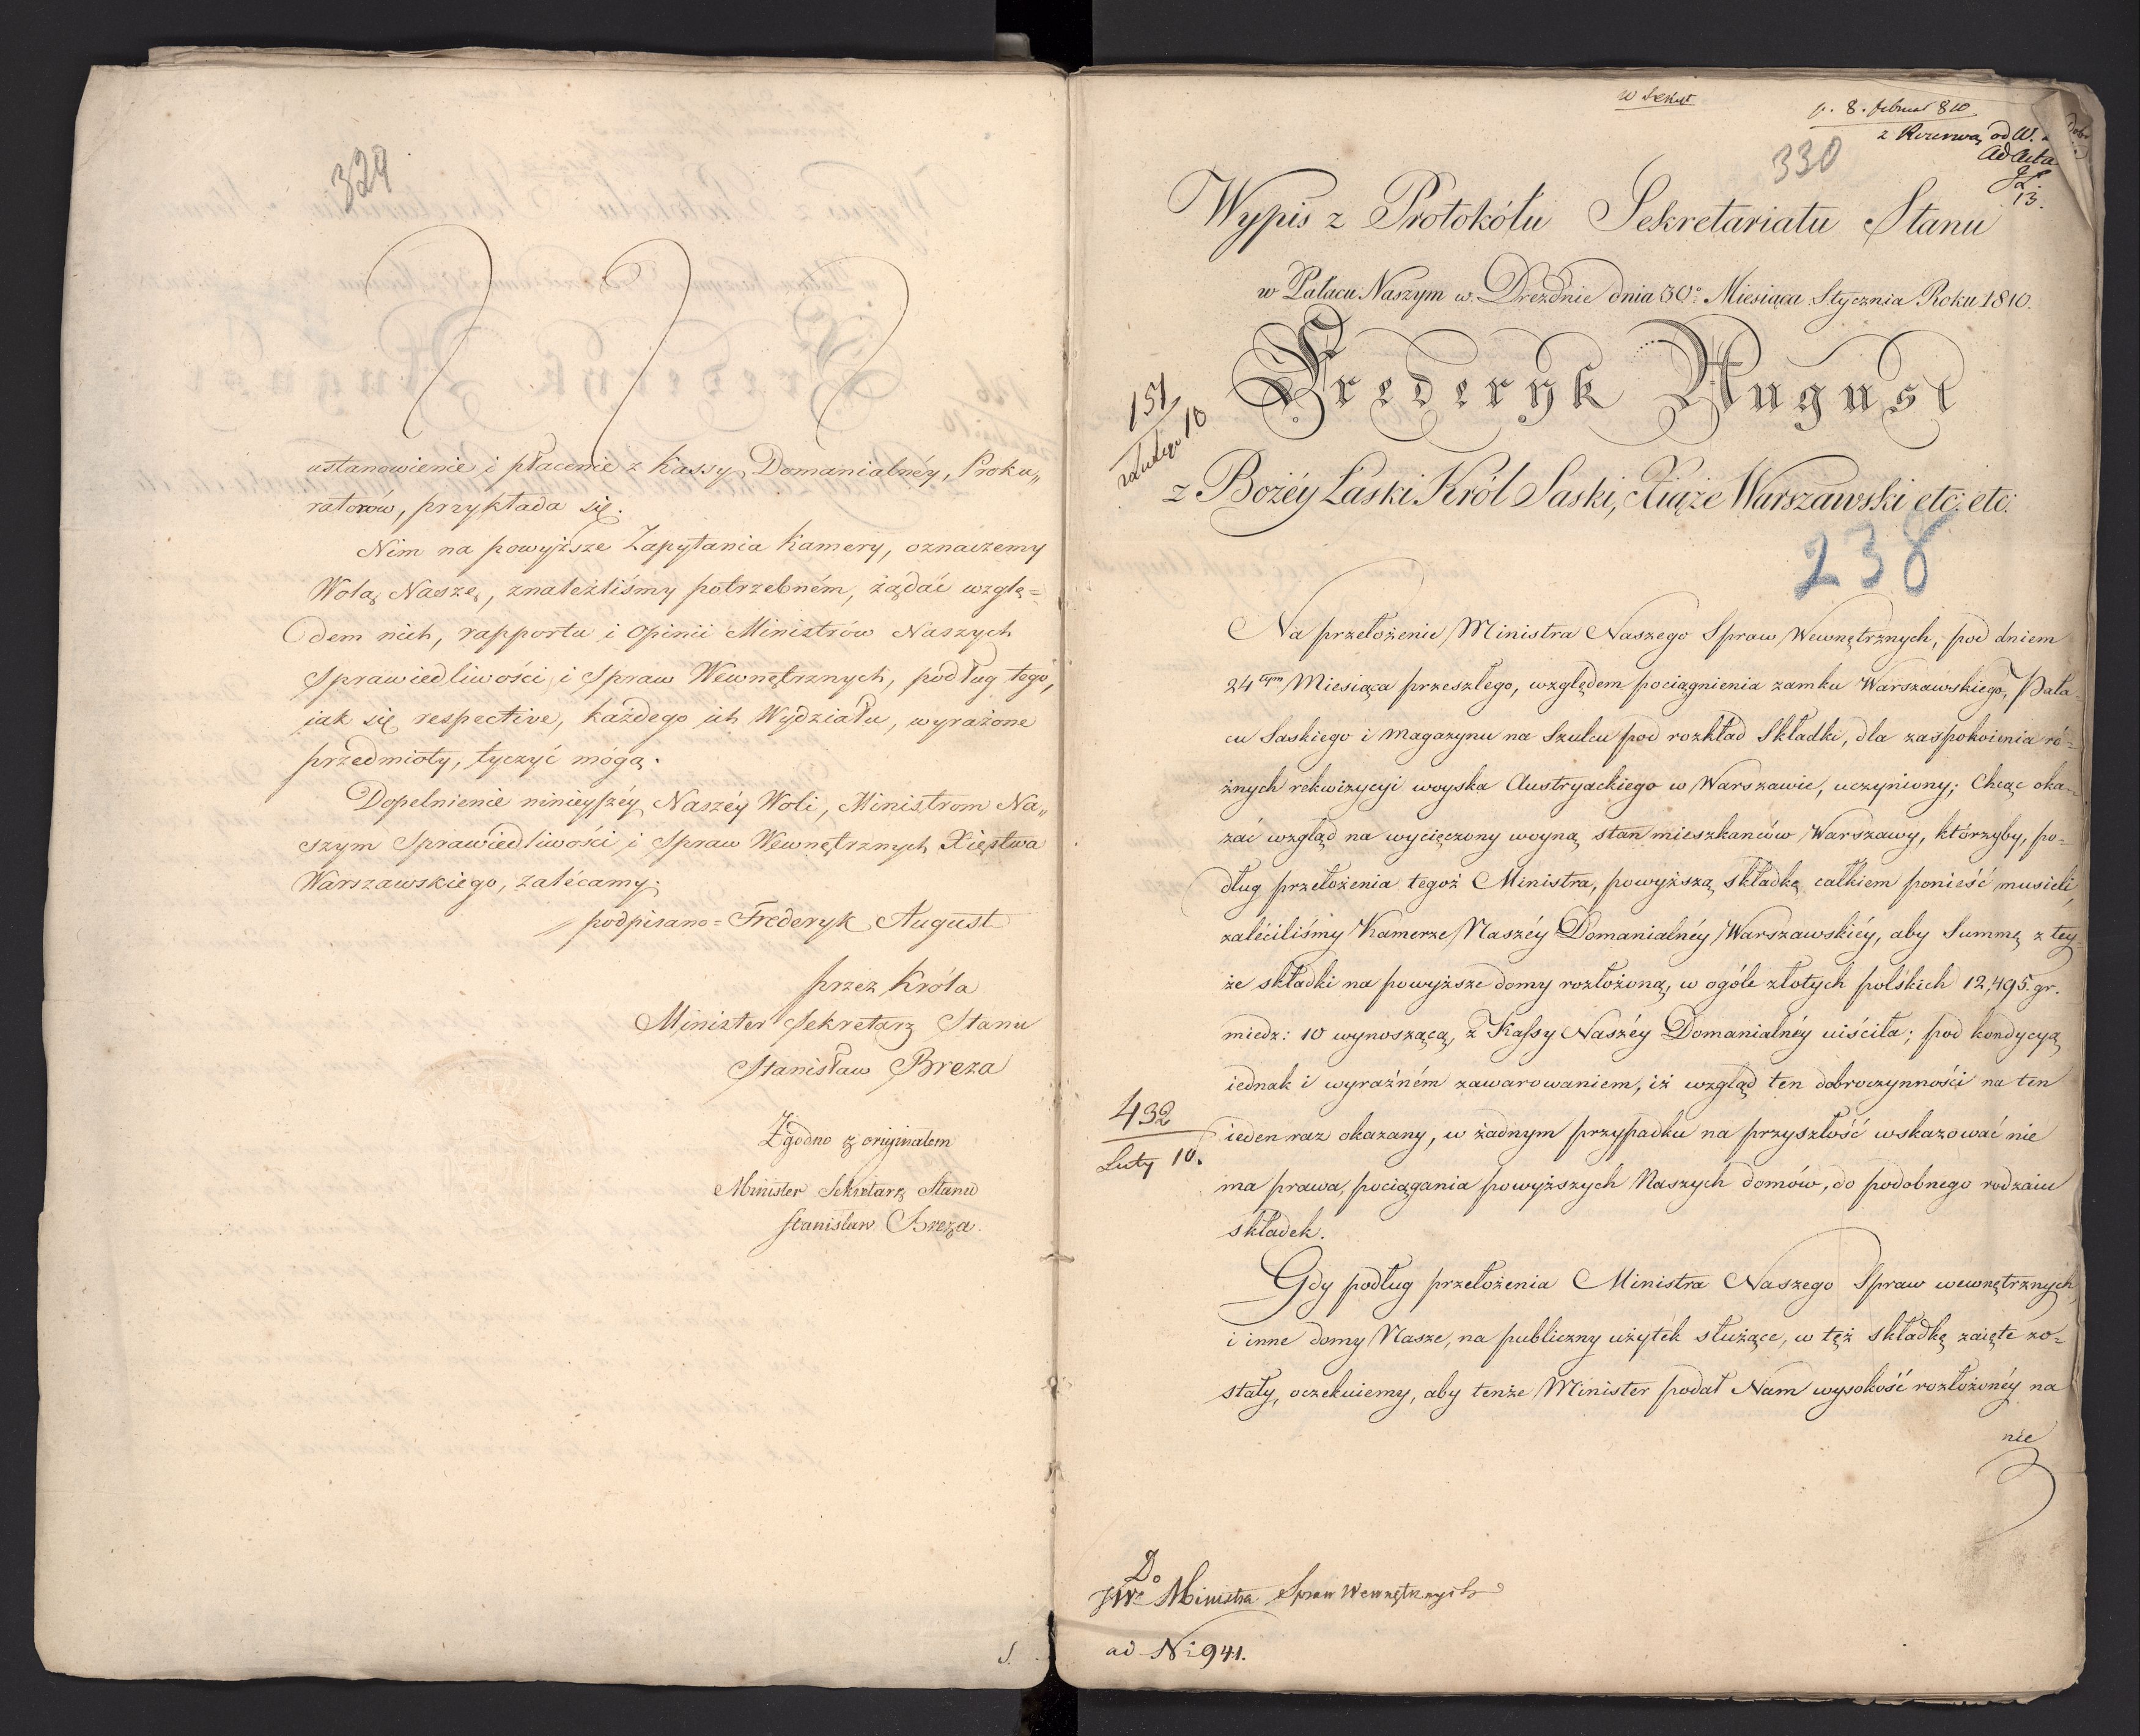 329
ustanowienie i płacenie z Kassy Domanialnéy, Proku„
ratorów, przykłada się.
Nim na powyższe Zapytania Kamery, oznaczemy
Wolą Naszę, znaleźliśmy potrzebném, żądać wzglę=
dem nich, rapportu i Opinii Ministrów Naszych
Sprawiedliwości i Spraw Wewnętrznych, podług tego,
jak się respective, każdego ich Wydziału, wyrażone
przedmioty, tyczyć mogą.
Dopełnienie ninieyszéy Naszéy Woli, Ministrom Na„
szym Sprawiedliwości i Spraw Wewnętrznych Xięstwa
Warszawskiego, zalécamy.
podpisano = Frederyk August
przez Króla
Minister Sekretarz Stanu
Stanisław Breza
Zgodno z oryginałem
Minister Sekretarz Stanu
Stanisław Breza.
p. 8. Febru 810
z Rezerwą od W.
ad Acta
13.
330
Wypis z Protokółu Sekretariatu Stanu
w Pałacu Naszym w Dreźdnie dnia 30º Miesiąca Stycznia Roku 1810.
Frederyk August
151
10
z Bożéy Łaski Król Saski, Xiąże Warszawski etc: etc:
238
Na przełożenie Ministra Naszego Spraw Wewnętrznych, pod dniem
24 tym Miesiąca przeszłego, względem pociągnienia zamku Warszawskiego, Pała-
cu Saskiego i Magazynu na Szulcu pod rozkład Składki, dla zaspokoienia ró=
żnych rekwizycyi woyska Austryackiego w Warszawie, uczyniony; Chcąc oka-
zać wzgląd na wycięczony woyną stan mieszkańców Warszawy, którzyby, po-
dług przełożenia tegoż Ministra, powyższą składkę całkiem ponieść musieli,
zaléciliśmy Kamerze Naszéy Domanialnéy Warszawskiéy, aby Summę z tey-
że składki na powyższe domy rozłożoną, w ogóle złotych polskich 12,495. gr.
miedz: 10 wynoszącą, z Kassy Naszéy Domanialnéy uiściła; pod kondycyą
iednak i wyraźném zawarowaniem, iż wzgląd ten dobroczynności na ten
432
Luty 10.
ieden raz okazany, w żadnym przypadku na przyszłość wskazować nie
ma prawa, pociągania powyższych Naszych domów, do podobnego rodzaiu
składek.
Gdy podług przełożenia Ministra Naszego Spraw wewnętrznych,
i inne domy Nasze, na publiczny użytek służące, w tęż składkę zaięte zo=
stały, oczekuiemy, aby tenże Minister podał Nam wysokość rozłożonéy na
nie
Do
JWo Ministra Spraw Wewnętrznych
ad No 941.